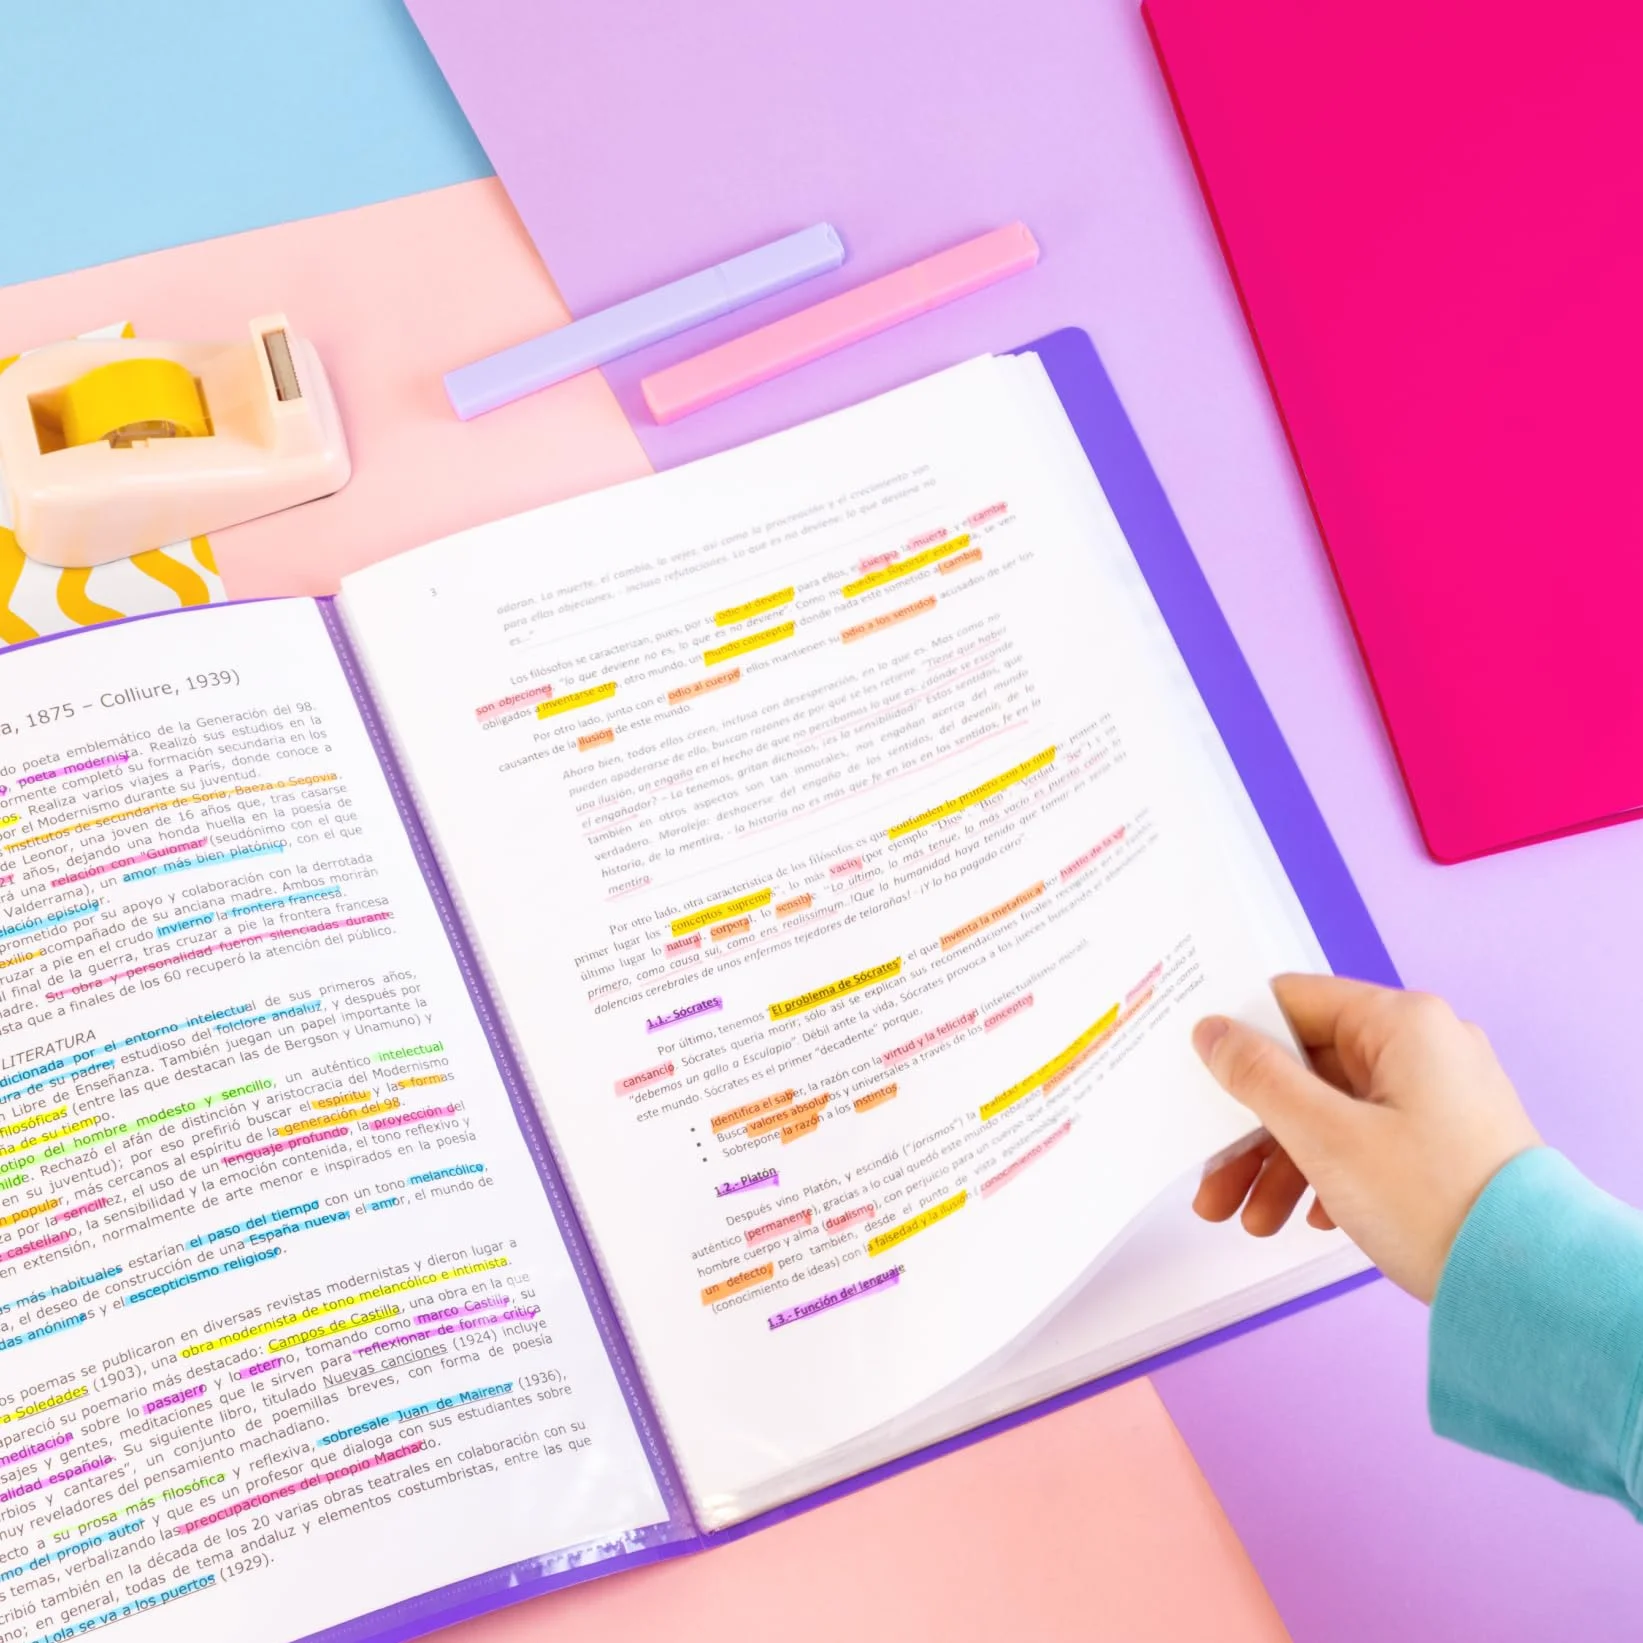 a, 1875 – Colliure, 1939)
do poeta emblemático de la Generación del 98.
poeta modernista. Realizó sus estudios en la
ormente completó su formación secundaria en los
ros. Realiza varios viajes a París, donde conoce a
por el Modernismo durante su juventud.
institutos de secundaria de Soria, Baeza o Segovia.
de Leonor, una joven de 16 años que, tras casarse
21 años, dejando una honda huella en la poesía de
rá una relación con "Guiomar" (seudónimo con el que
Valderrama), un amor más bien platónico, con el que
elación epistolar.
prometido por su apoyo y colaboración con la derrotada
exilio acompañado de su anciana madre. Ambos morirán
ruzar a pie en el crudo invierno la frontera francesa.
l final de la guerra, tras cruzar a pie la frontera francesa
madre. Su obra y personalidad fueron silenciadas durante
sta que a finales de los 60 recuperó la atención del público.
LITERATURA
dicionada por el entorno intelectual de sus primeros años,
ura de su padre; estudioso del folclore andaluz, y después por
n Libre de Enseñanza. También juegan un papel importante la
filosóficas (entre las que destacan las de Bergson y Unamuno) y
ña de su tiempo.
otipo del hombre modesto y sencillo, un auténtico intelectual
ilde. Rechazó el afán de distinción y aristocracia del Modernismo
en su juventud); por eso prefirió buscar el espíritu y las formas
n popular, más cercanos al espíritu de la generación del 98.
za por la sencillez, el uso de un lenguaje profundo, la proyección del
castellano, la sensibilidad y la emoción contenida, el tono reflexivo y
en extensión, normalmente de arte menor e inspirados en la poesía
as más habituales estarían el paso del tiempo con un tono melancólico,
a, el deseo de construcción de una España nueva, el amor, el mundo de
das anónimas y el escepticismo religioso.
os poemas se publicaron en diversas revistas modernistas y dieron lugar a
a Soledades (1903), una obra modernista de tono melancólico e intimista.
apareció su poemario más destacado: Campos de Castilla, una obra en la que
meditación sobre lo pasajero y lo eterno, tomando como marco Castilla, su
sajes y gentes, meditaciones que le sirven para reflexionar de forma crítica
alidad española. Su siguiente libro, titulado Nuevas canciones (1924) incluye
rbios y cantares", un conjunto de poemillas breves, con forma de poesía
muy reveladores del pensamiento machadiano.
ecto a su prosa más filosófica y reflexiva, sobresale Juan de Mairena (1936),
mo del propio autor y que es un profesor que dialoga con sus estudiantes sobre
s temas, verbalizando las preocupaciones del propio Machado.
cribió también en la década de los 20 varias obras teatrales en colaboración con su
ano; en general, todas de tema andaluz y elementos costumbristas, entre las que
Lola se va a los puertos (1929).
3
adoran. La muerte, el cambio, la vejez, así como la procreación y el crecimiento son
para ellos objeciones, - incluso refutaciones. Lo que es no deviene; lo que deviene no
es..."
Los filósofos se caracterizan, pues, por su odio al devenir, para ellos, el cuerpo, la muerte, y el cambio
son objeciones, "lo que deviene no es, lo que es no deviene". Como no pueden soportar esta vida, se ven
obligados a inventarse otra, otro mundo, un mundo conceptual donde nada esté sometido al cambio
Por otro lado, junto con el odio al cuerpo, ellos mantienen su odio a los sentidos, acusados de ser los
causantes de la ilusión de este mundo.
Ahora bien, todos ellos creen, incluso con desesperación, en lo que es. Mas como no
pueden apoderarse de ello, buscan razones de por qué se les retiene. "Tiene que haber
una ilusión, un engaño en el hecho de que no percibamos lo que es: ¿dónde se esconde
el engañador? – Lo tenemos, gritan dichosos, ¡es la sensibilidad!" Estos sentidos, que
también en otros aspectos son tan inmorales, nos engañan acerca del mundo
verdadero. Moraleja: deshacerse del engaño de los sentidos, del devenir, de la
historia, de la mentira, - la historia no es más que fe en los sentidos, fe en la
mentira.
Por otro lado, otra característica de los filósofos es que confunden lo primero con lo último, ponen en
primer lugar los "conceptos supremos", lo más vacío (por ejemplo "Dios", "Bien", "Verdad, "Ser") y en
último lugar lo natural, corporal, lo sensible "Lo último, lo más tenue, lo más vacío es puesto como lo
primero, como causa sui, como ens realissimum...!Que la humanidad haya tenido que tomar en serio las
dolencias cerebrales de unos enfermos tejedores de telarañas! - ¡Y lo ha pagado caro"
1.1.- Sócrates
Por último, tenemos "El problema de Sócrates", el que inventa la metafísica por hastío de la vida, por
cansancio. Sócrates quería morir, sólo así se explican sus recomendaciones finales recogidas en el
"debemos un gallo a Esculapio". Débil ante la vida, Sócrates provoca a los jueces buscando el
este mundo. Sócrates es el primer "decadente" porque.
• Identifica el saber, la razón con la virtud y la felicidad (intelectualismo moral).
• Busca valores absolutos y universales a través de los conceptos
• Sobrepone la razón a los instintos
1.2.- Platón.
Después vino Platón, y escindió ("jorismos") la realidad en un
auténtico (permanente), gracias a lo cual quedó este mundo rebajado
hombre cuerpo y alma (dualismo), con perjuicio para un cuerpo que desde
un defecto, pero también, desde el punto de vista epistemológico,
(conocimiento de ideas) con la falsedad y la ilusión (conocimiento sensible).
1.3.- Función del lenguaje